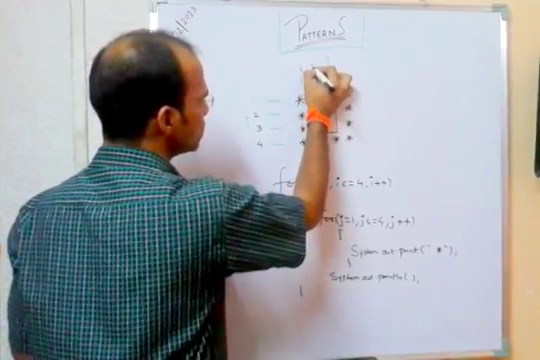 /2013
PATTERNS
*
2 * *
3 * *
4 * * * *
for , i<=4, i++)
for(j=1, j<=4, j++)
{
System out print(" * "),
}
System out println( ),
}